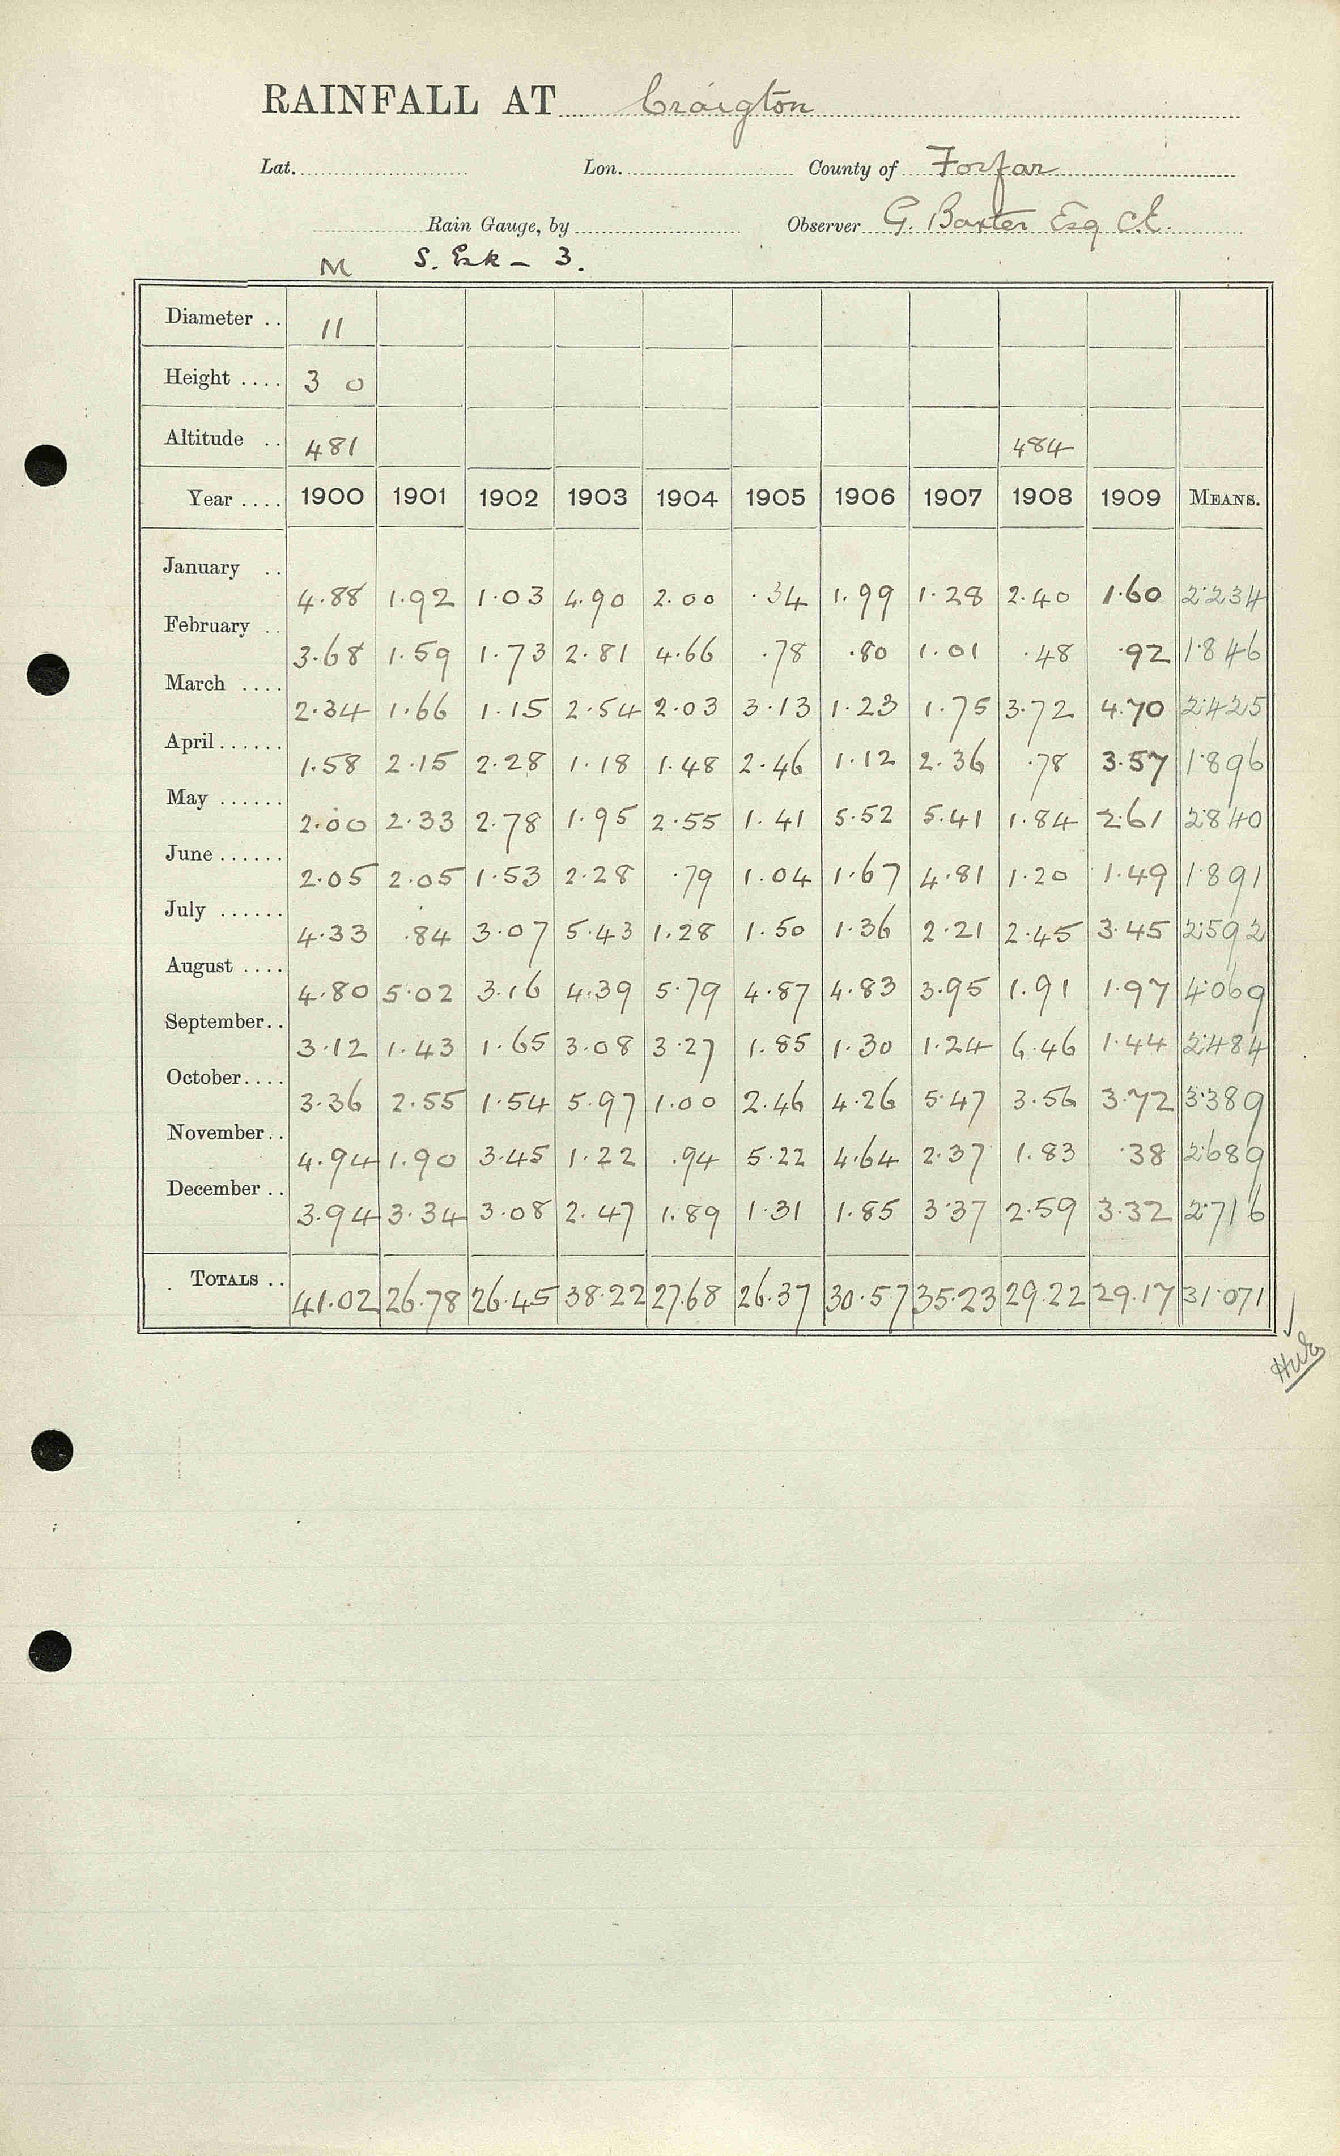 RAINFALL AT Craigton
Lat. Lon. County of Forfar
Rain Gauge, by Observer G. Baxter Esq C.E.
M S. Esk - 3.
Diameter .. 11
Height .... 3 0
Altitude .. 481 484
Year .... 1900 1901 1902 1903 1904 1905 1906 1907 1908 1909 MEANS.
January .. 4.88 1.92 1.03 4.90 2.00 .34 1.99 1.28 2.40 1.60 2.234
February .. 3.68 1.59 1.73 2.81 4.66 .78 .80 1.01 .48 .92 1.846
March .... 2.34 1.66 1.15 2.54 2.03 3.13 1.23 1.75 3.72 4.70 2.425
April...... 1.58 2.15 2.28 1.18 1.48 2.46 1.12 2.36 .78 3.57 1.896
May ...... 2.00 2.33 2.78 1.95 2.55 1.41 5.52 5.41 1.84 2.61 2.840
June ...... 2.05 2.05 1.53 2.28 .79 1.04 1.67 4.81 1.20 1.49 1.891
July ...... 4.33 .84 3.07 5.43 1.28 1.50 1.36 2.21 2.45 3.45 2.592
August .... 4.80 5.02 3.16 4.39 5.79 4.87 4.83 3.95 1.91 1.97 4.069
September.. 3.12 1.43 1.65 3.08 3.27 1.85 1.30 1.24 6.46 1.44 2.484
October.... 3.36 2.55 1.54 5.97 1.00 2.46 4.26 5.47 3.56 3.72 3.389
November.. 4.94 1.90 3.45 1.22 .94 5.22 4.64 2.37 1.83 .38 2.689
December .. 3.94 3.34 3.08 2.47 1.89 1.31 1.85 3.37 2.59 3.32 2.716
TOTALS .. 41.02 26.78 26.45 38.22 27.68 26.37 30.57 35.23 29.22 29.17 31.071